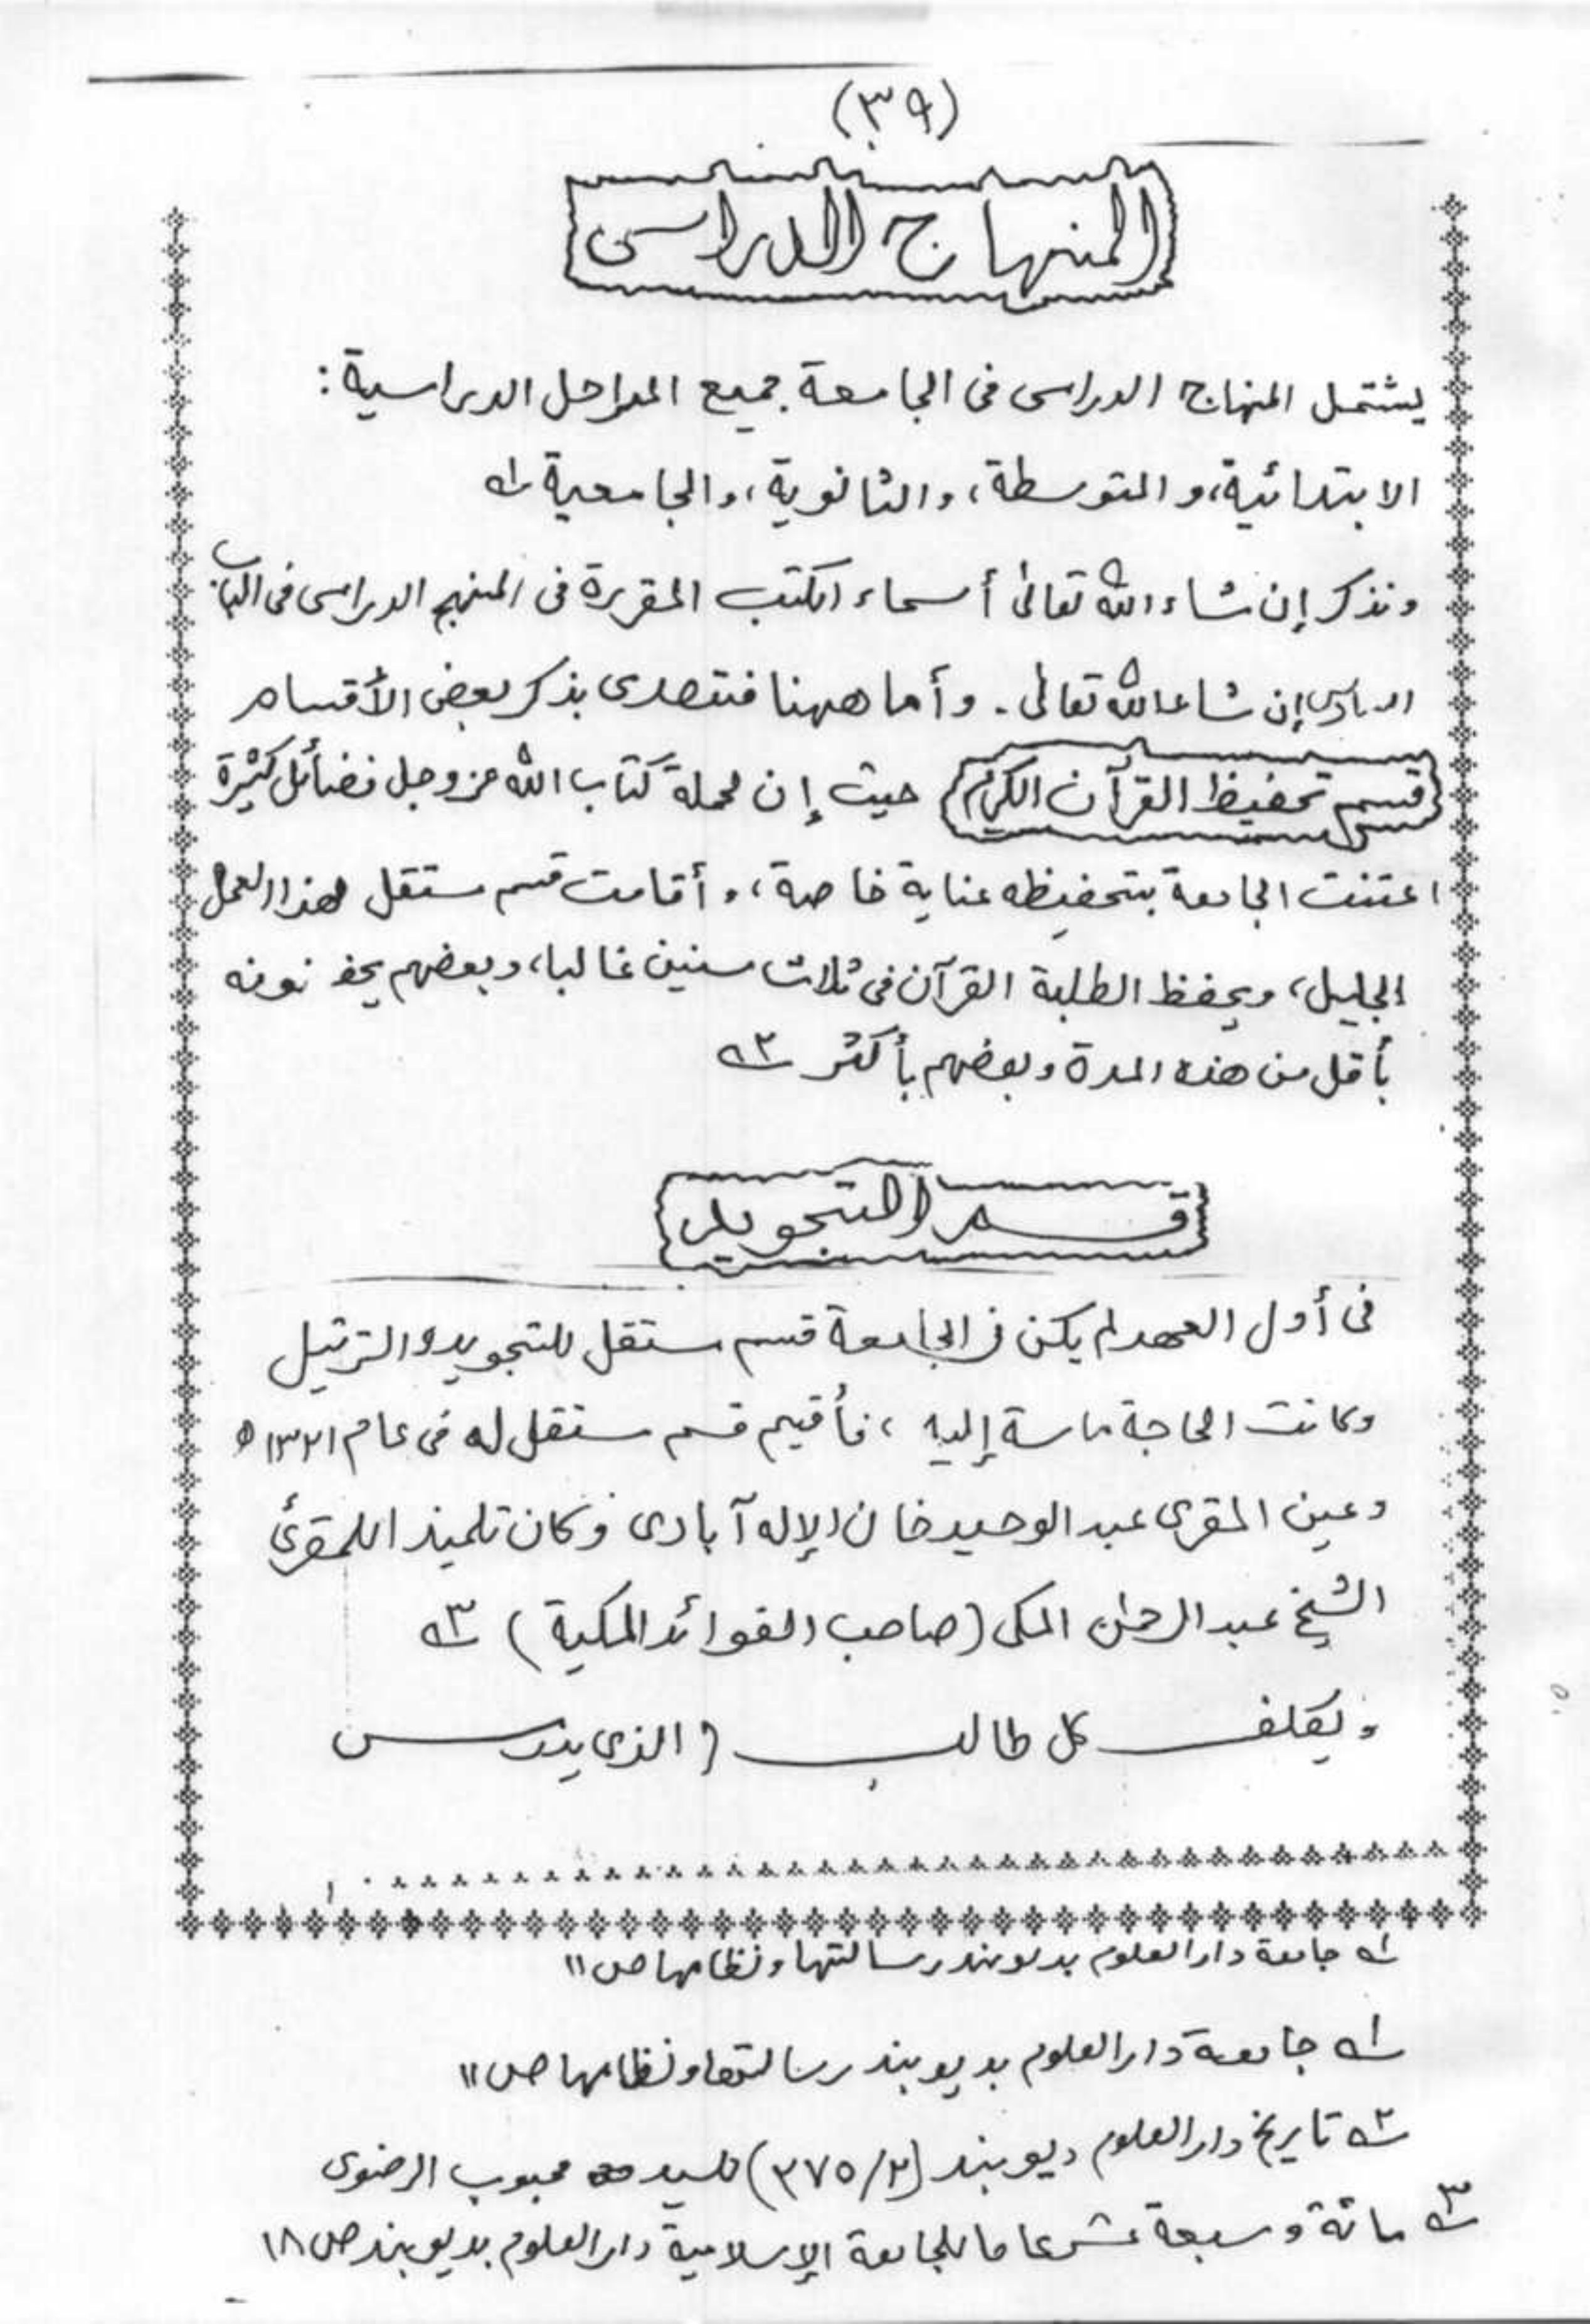 (٣٩)
المنهاج الدراسى
يشتمل المنهاج الدراسى فى الجامعة جميع المراحل الدراسية:
الابتدائية، و المتوسطة، والثانوية، والجامعية ١ـه
ونذكر إن شاء الله تعالىٰ أسماء الكتب المقررة فى المنهج الدراسى فى الباب
إن شاء الله تعالى. وأما ههنا فنتصدى بذكر بعض الأقسام
قسم تحفيظ القرآن الكريم حيث إن لحملة كتاب الله عز وجل فضائل كثيرة
اعتنت الجامعة بتحفيظه عناية خاصة، وأقامت قسم مستقل لهذا العمل
الجليل، ويحفظ الطلبة القرآن فى ثلاث سنين غالبا، وبعضهم يحفظونه
بأقل من هذه المدة وبعضهم بأكثر ٢ـه
قسم التجويد
فى أول العهد لم يكن فى الجامعة قسم مستقل للتجويد و الترتيل
وكانت الحاجة ماسة إليه، فأقيم قسم مستقل له فى عام ١٣٢١ ه
وعين المقرى عبد الوحيد خان الإله آبادى وكان تلميذ اللمقرئ
الشيخ عبد الرحمٰن المكى (صاحب الفوائد المكية) ٣ـه
ويكلف كل طالب (الذى يدرس
١ـه جامعة دار العلوم بديوبند رسالتها ونظامها ص ١١
١ـه جامعة دار العلوم بديوبند رسالتها ونظامها ص ١١
٢ـه تاريخ دار العلوم ديوبند (٢/٣٧٥) للسيد محبوب الرضوى
٣ـه مائة وسبعة عشر عاما للجامعة الإسلامية دار العلوم بديوبند ص ١٨